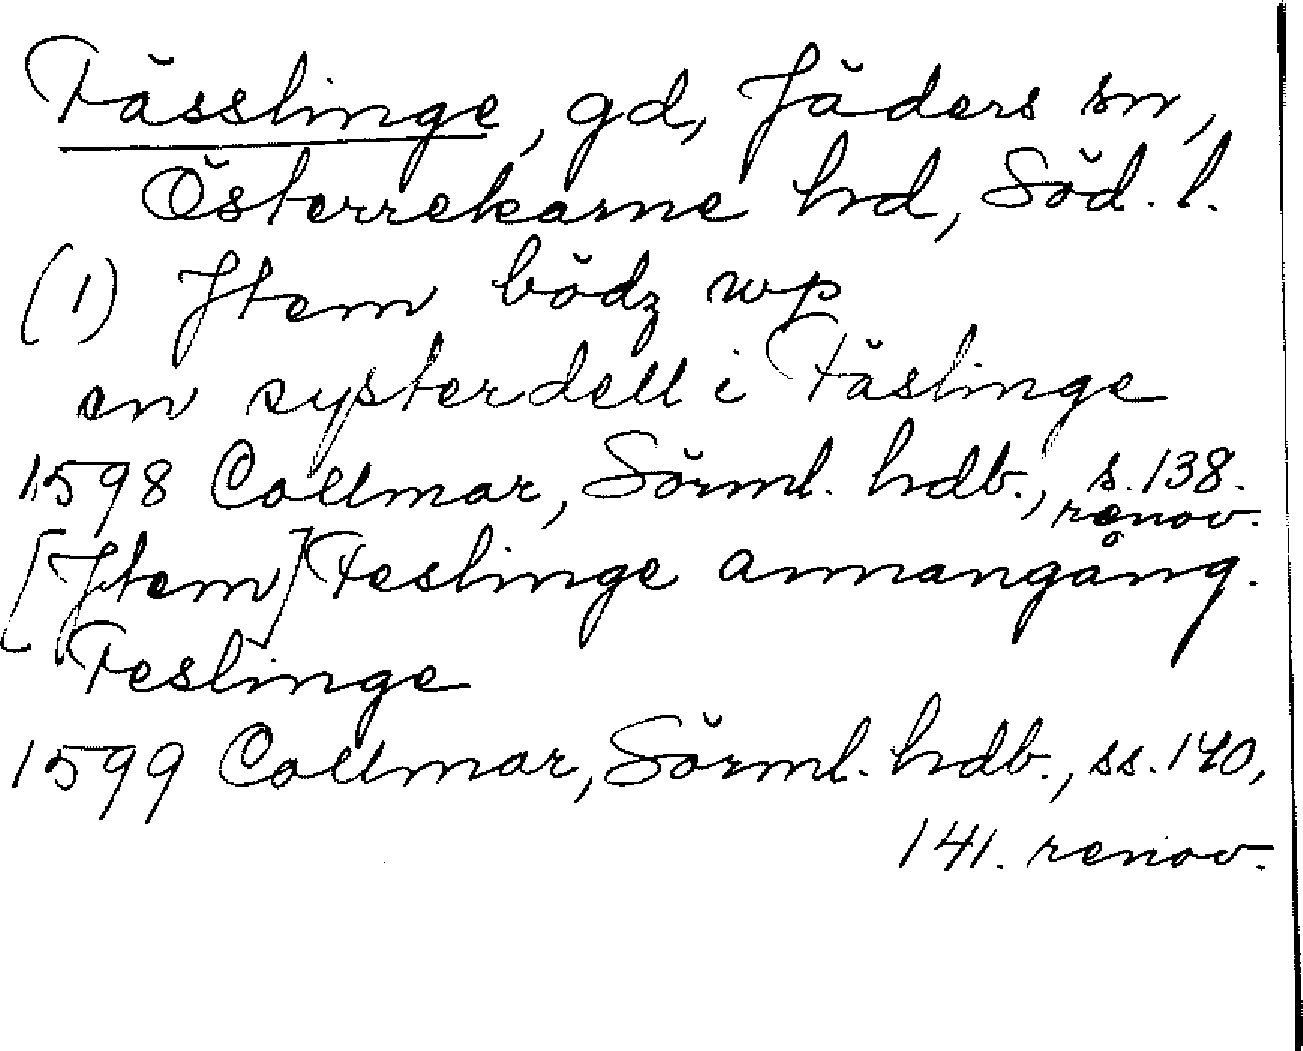 Fässlinge, gd, Jäders sn,
Österrekarne hd, Söd. l.
(1) Jtem bödz wp
en systerdell i Fäslinge
1598 Collmar, Sörml. hdb., s. 138.
renov.
[Jtem] Feslinge annangång.
Feslinge
1599 Collmar, Sörml. hdb., ss. 140,
141. renov.